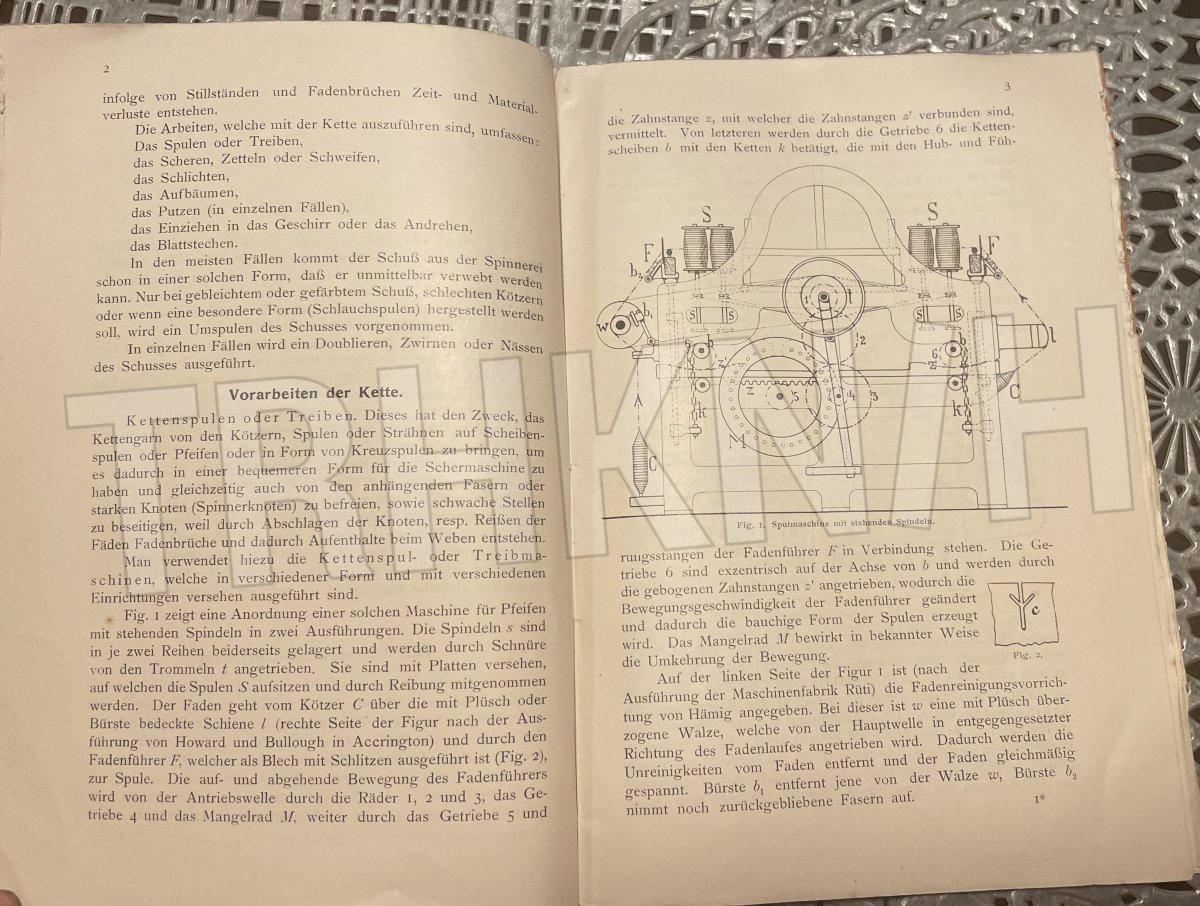 2
infolge von Stillständen und Fadenbrüchen Zeit- und Material-
verluste entstehen.
Die Arbeiten, welche mit der Kette auszuführen sind, umfassen:
Das Spulen oder Treiben,
das Scheren, Zetteln oder Schweifen,
das Schlichten,
das Aufbäumen,
das Putzen (in einzelnen Fällen),
das Einziehen in das Geschirr oder das Andrehen,
das Blattstechen.
In den meisten Fällen kommt der Schuß aus der Spinnerei
schon in einer solchen Form, daß er unmittelbar verwebt werden
kann. Nur bei gebleichtem oder gefärbtem Schuß, schlechten Kötzern
oder wenn eine besondere Form (Schlauchspulen) hergestellt werden
soll, wird ein Umspulen des Schusses vorgenommen.
In einzelnen Fällen wird ein Doublieren, Zwirnen oder Nässen
des Schusses ausgeführt.
Vorarbeiten der Kette.
Kettenspulen oder Treiben. Dieses hat den Zweck, das
Kettengarn von den Kötzern, Spulen oder Strähnen auf Scheiben-
spulen oder Pfeifen oder in Form von Kreuzspulen zu bringen, um
es dadurch in einer bequemeren Form für die Schermaschine zu
haben und gleichzeitig auch von den anhängenden Fasern oder
starken Knoten (Spinnerknoten) zu befreien, sowie schwache Stellen
zu beseitigen, weil durch Abschlagen der Knoten, resp. Reißen der
Fäden Fadenbrüche und dadurch Aufenthalte beim Weben entstehen.
Man verwendet hiezu die Kettenspul- oder Treibma-
schinen, welche in verschiedener Form und mit verschiedenen
Einrichtungen versehen ausgeführt sind.
Fig. 1 zeigt eine Anordnung einer solchen Maschine für Pfeifen
mit stehenden Spindeln in zwei Ausführungen. Die Spindeln s sind
in je zwei Reihen beiderseits gelagert und werden durch Schnüre
von den Trommeln t angetrieben. Sie sind mit Platten versehen,
auf welchen die Spulen S aufsitzen und durch Reibung mitgenommen
werden. Der Faden geht vom Kötzer C über die mit Plüsch oder
Bürste bedeckte Schiene l (rechte Seite der Figur nach der Aus-
führung von Howard und Bullough in Accrington) und durch den
Fadenführer F, welcher als Blech mit Schlitzen ausgeführt ist (Fig. 2),
zur Spule. Die auf- und abgehende Bewegung des Fadenführers
wird von der Antriebswelle durch die Räder 1, 2 und 3, das Ge-
triebe 4 und das Mangelrad M, weiter durch das Getriebe 5 und
3
die Zahnstange z, mit welcher die Zahnstangen z' verbunden sind,
vermittelt. Von letzteren werden durch die Getriebe 6 die Ketten-
scheiben b mit den Ketten k betätigt, die mit den Hub- und Füh-
S S
F F
b2
w b1 t l
s s s s
2
6 b
z'
z 5 4 3
k k
M
C C
Fig. 1. Spulmaschine mit stehenden Spindeln.
rungsstangen der Fadenführer F in Verbindung stehen. Die Ge-
triebe 6 sind exzentrisch auf der Achse von b und werden durch
die gebogenen Zahnstangen z' angetrieben, wodurch die
Bewegungsgeschwindigkeit der Fadenführer geändert
und dadurch die bauchige Form der Spulen erzeugt
wird. Das Mangelrad M bewirkt in bekannter Weise
die Umkehrung der Bewegung.
c
Fig. 2.
Auf der linken Seite der Figur 1 ist (nach der
Ausführung der Maschinenfabrik Rüti) die Fadenreinigungsvorrich-
tung von Hämig angegeben. Bei dieser ist w eine mit Plüsch über-
zogene Walze, welche von der Hauptwelle in entgegengesetzter
Richtung des Fadenlaufes angetrieben wird. Dadurch werden die
Unreinigkeiten vom Faden entfernt und der Faden gleichmäßig
gespannt. Bürste b1 entfernt jene von der Walze w, Bürste b2
nimmt noch zurückgebliebene Fasern auf.
1*
TRHKN/H